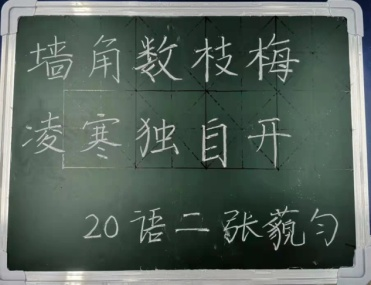 墙角数枝梅
凌寒独自开
20语二张藐匀